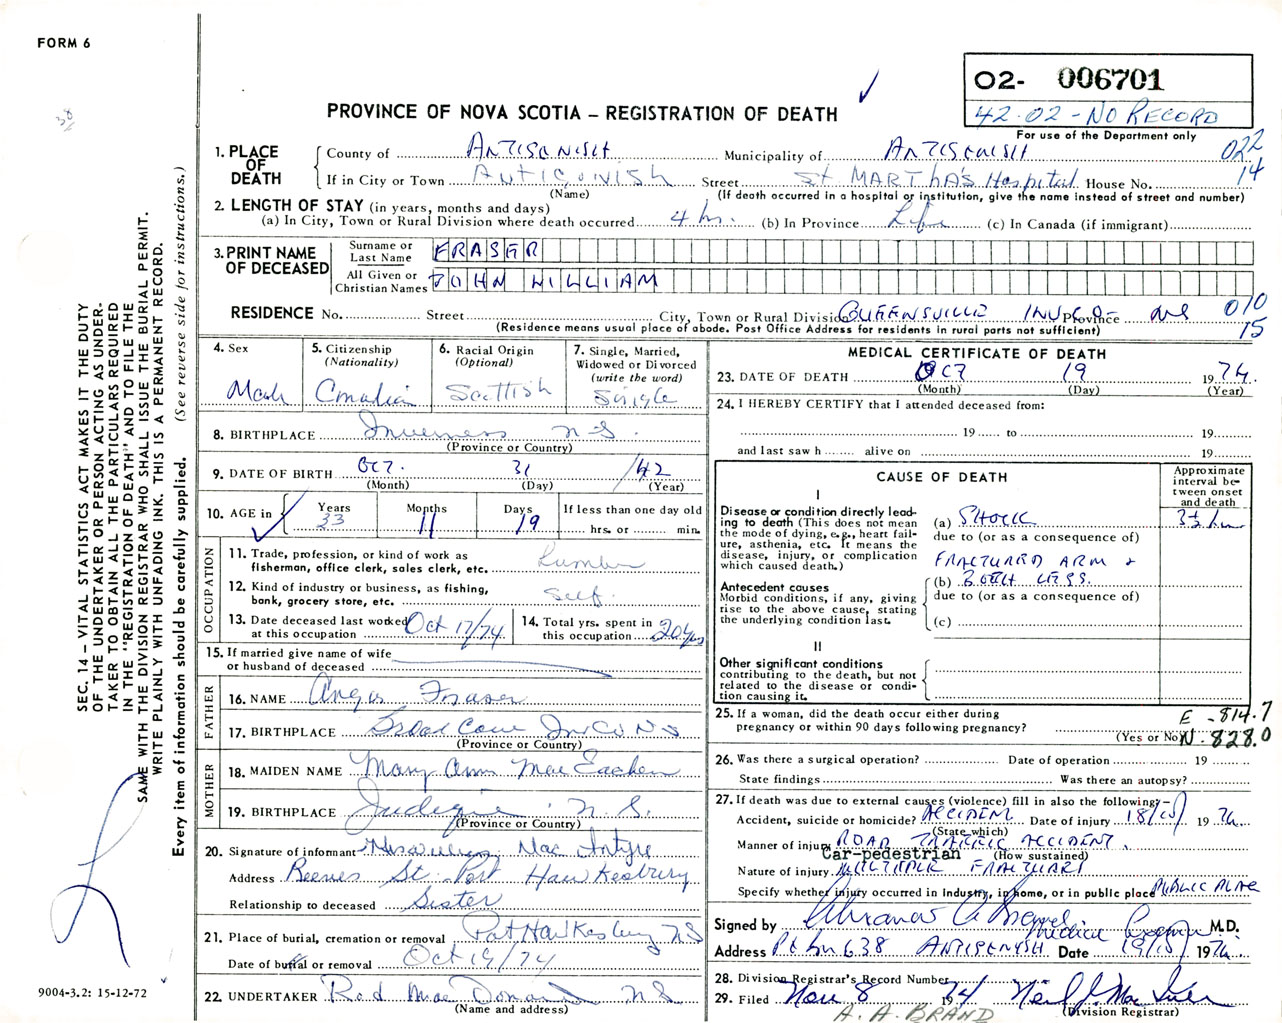 FORM 6
02- 006701
42-02-NO RECORD
For use of the Department only
38
PROVINCE OF NOVA SCOTIA – REGISTRATION OF DEATH
022
14
1. PLACE OF DEATH
County of ANTIGONISH Municipality of ANTIGONISH
If in City or Town ANTIGONISH Street St MARTHA'S Hospital House No.
(Name) (If death occurred in a hospital or institution, give the name instead of street and number)
2. LENGTH OF STAY (in years, months and days)
(a) In City, Town or Rural Division where death occurred 4 hr. (b) In Province Life (c) In Canada (if immigrant)
3. PRINT NAME OF DECEASED
Surname or Last Name FRASER
All Given or Christian Names JOHN WILLIAM
RESIDENCE No. Street City, Town or Rural Division QUEENSVILLE INV CO- Province NS 010
15
(Residence means usual place of abode. Post Office Address for residents in rural parts not sufficient)
4. Sex
Male
5. Citizenship
(Nationality)
Canadian
6. Racial Origin
(Optional)
Scottish
7. Single, Married,
Widowed or Divorced
(write the word)
Single
8. BIRTHPLACE Inverness N-S.
(Province or Country)
9. DATE OF BIRTH Oct. 31 /42
(Month) (Day) (Year)
10. AGE in
Years Months Days If less than one day old
33 11 19 hrs. or min.
OCCUPATION
11. Trade, profession, or kind of work as
fisherman, office clerk, sales clerk, etc. Lumber
12. Kind of industry or business, as fishing,
bank, grocery store, etc. Self.
13. Date deceased last worked
at this occupation Oct 17/74
14. Total yrs. spent in
this occupation 20 yrs
15. If married give name of wife
or husband of deceased
FATHER
16. NAME Angus Fraser
17. BIRTHPLACE Broad Cove Inv Co NS
(Province or Country)
MOTHER
18. MAIDEN NAME Mary Ann MacEachen
19. BIRTHPLACE Judique N.S.
(Province or Country)
20. Signature of informant Mac Intyre
Address Reeves St. Port Hawkesbury
Relationship to deceased Sister
21. Place of burial, cremation or removal Port Hawkesbury NS
Date of burial or removal Oct 19/74
22. UNDERTAKER Rod MacDonald NS
(Name and address)
MEDICAL CERTIFICATE OF DEATH
23. DATE OF DEATH OCT 19 1974
(Month) (Day) (Year)
24. I HEREBY CERTIFY that I attended deceased from:
19 to 19
and last saw h alive on 19
CAUSE OF DEATH
Approximate interval between onset and death
I
Disease or condition directly leading to death (This does not mean the mode of dying, e.g., heart failure, asthenia, etc. It means the disease, injury, or complication which caused death.)
(a) SHOCK 3½ hr
due to (or as a consequence of)
FRACTURED ARM &
(b) BOTH LEGS.
due to (or as a consequence of)
(c)
Antecedent causes
Morbid conditions, if any, giving rise to the above cause, stating the underlying condition last.
II
Other significant conditions
contributing to the death, but not related to the disease or condition causing it.
25. If a woman, did the death occur either during
pregnancy or within 90 days following pregnancy?
(Yes or No)
E -814.7
N-828.0
26. Was there a surgical operation? Date of operation 19
State findings Was there an autopsy?
27. If death was due to external causes (violence) fill in also the following:–
Accident, suicide or homicide? ACCIDENT Date of injury 18/10/ 1974
(State which)
Manner of injury ROAD TRAFFIC ACCIDENT.
Car-pedestrian (How sustained)
Nature of injury MULTIPLE FRACTURES
Specify whether injury occurred in industry, in home, or in public place PUBLIC PLACE
Signed by M.D.
Address ANTIGONISH Date 19/10/ 1974
28. Division Registrar's Record Number
29. Filed Nov 8 1974
(Division Registrar)
A. A. BRAND
SEC. 14 – VITAL STATISTICS ACT MAKES IT THE DUTY
OF THE UNDERTAKER OR PERSON ACTING AS UNDER-
TAKER TO OBTAIN ALL THE PARTICULARS REQUIRED
IN THE "REGISTRATION OF DEATH" AND TO FILE THE
SAME WITH THE DIVISION REGISTRAR WHO SHALL ISSUE THE BURIAL PERMIT.
WRITE PLAINLY WITH UNFADING INK. THIS IS A PERMANENT RECORD.
Every item of information should be carefully supplied. (See reverse side for instructions.)
9004-3.2: 15-12-72